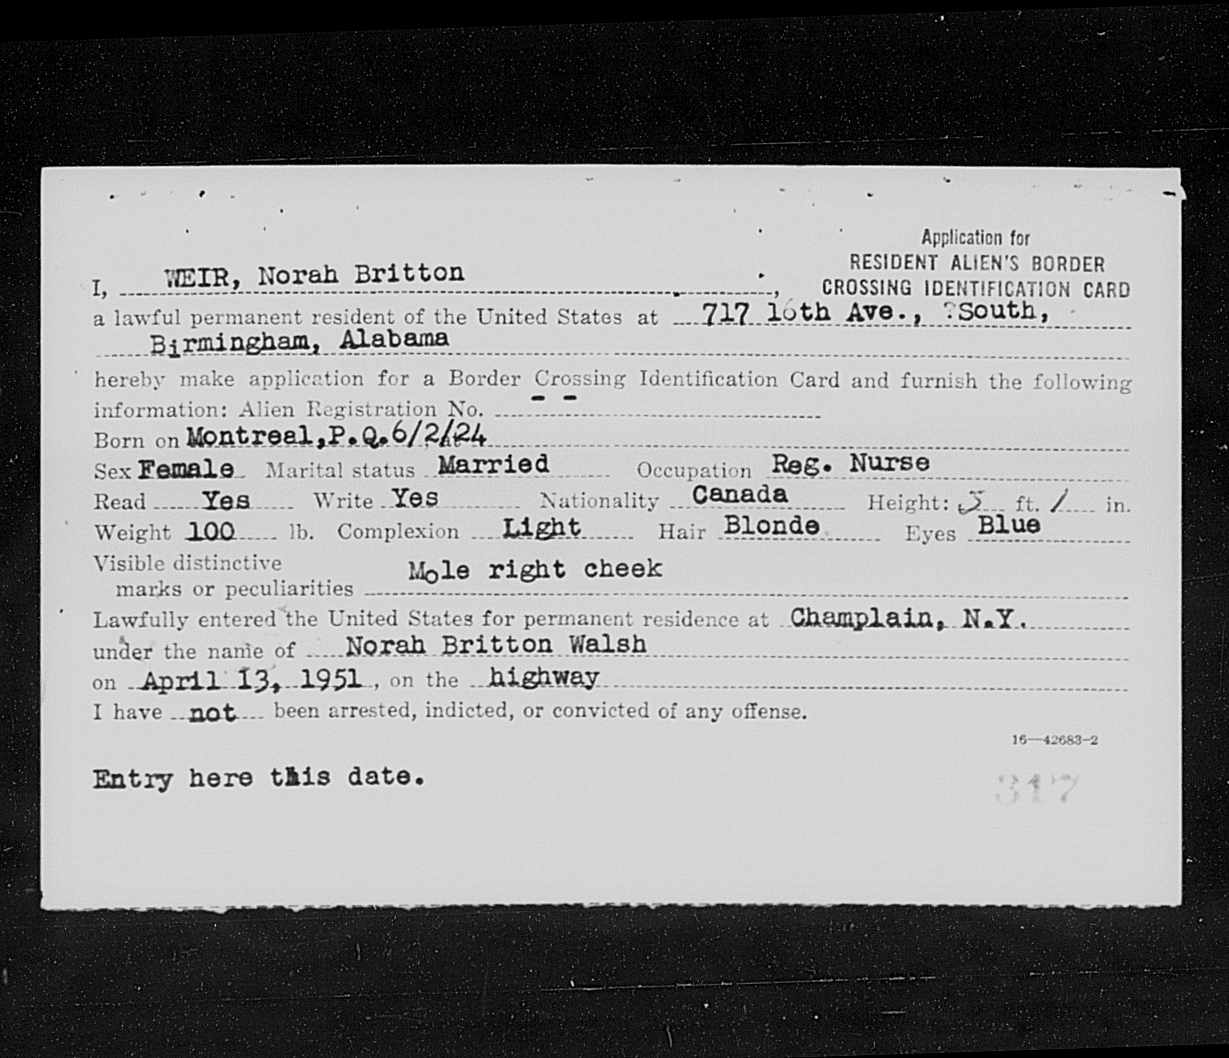 Application for
RESIDENT ALIEN'S BORDER
CROSSING IDENTIFICATION CARD
I, WEIR, Norah Britton,
a lawful permanent resident of the United States at 717 16th Ave., South,
Birmingham, Alabama
hereby make application for a Border Crossing Identification Card and furnish the following
information: Alien Registration No. - -
Born on Montreal, P.Q. 6/2/24
Sex Female Marital status Married Occupation Reg. Nurse
Read Yes Write Yes Nationality Canada Height: 5 ft. 1 in.
Weight 100 lb. Complexion Light Hair Blonde Eyes Blue
Visible distinctive
marks or peculiarities Mole right cheek
Lawfully entered the United States for permanent residence at Champlain, N.Y.
under the name of Norah Britton Walsh
on April 13, 1951, on the highway
I have not been arrested, indicted, or convicted of any offense.
16—42683-2
Entry here this date.
317